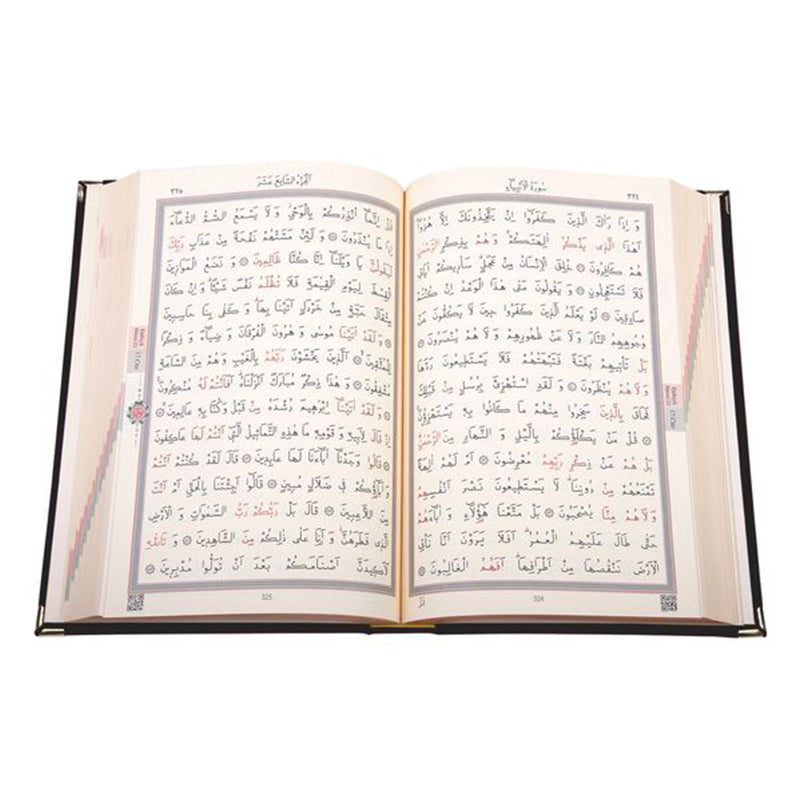 ٣٢٤
سورة الانبياء
وَ اِذَا رَاٰكَ الَّذٖينَ كَفَرُوا اِنْ يَتَّخِذُونَكَ اِلَّا هُزُوًا
اَهٰذَا الَّذٖى يَذْكُرُ اٰلِهَتَكُمْ وَهُمْ بِذِكْرِ الرَّحْمٰنِ
هُمْ كَافِرُونَ خُلِقَ الْاِنْسَانُ مِنْ عَجَلٍ سَاُرٖيكُمْ اٰيَاتٖى
فَلَا تَسْتَعْجِلُونِ وَ يَقُولُونَ مَتٰى هٰذَا الْوَعْدُ اِنْ كُنْتُمْ
صَادِقٖينَ لَوْ يَعْلَمُ الَّذٖينَ كَفَرُوا حٖينَ لَا يَكُفُّونَ عَنْ
وُجُوهِهِمُ النَّارَ وَ لَا عَنْ ظُهُورِهِمْ وَ لَا هُمْ يُنْصَرُونَ
بَلْ تَاْتٖيهِمْ بَغْتَةً فَتَبْهَتُهُمْ فَلَا يَسْتَطٖيعُونَ رَدَّهَا
وَ لَا هُمْ يُنْظَرُونَ وَ لَقَدِ اسْتُهْزِئَ بِرُسُلٍ مِنْ قَبْلِكَ
فَحَاقَ بِالَّذٖينَ سَخِرُوا مِنْهُمْ مَا كَانُوا بِهٖ يَسْتَهْزِؤُنَ
قُلْ مَنْ يَكْلَؤُكُمْ بِالَّيْلِ وَ النَّهَارِ مِنَ الرَّحْمٰنِ
بَلْ هُمْ عَنْ ذِكْرِ رَبِّهِمْ مُعْرِضُونَ اَمْ لَهُمْ اٰلِهَةٌ
تَمْنَعُهُمْ مِنْ دُونِنَا لَا يَسْتَطٖيعُونَ نَصْرَ اَنْفُسِهِمْ
وَ لَا هُمْ مِنَّا يُصْحَبُونَ بَلْ مَتَّعْنَا هٰؤُلَاءِ وَ اٰبَاءَهُمْ
حَتّٰى طَالَ عَلَيْهِمُ الْعُمُرُ اَفَلَا يَرَوْنَ اَنَّا نَاْتِى
الْاَرْضَ نَنْقُصُهَا مِنْ اَطْرَافِهَا اَفَهُمُ الْغَالِبُونَ
قُلْ
324
٣٢٥
الجزء السابع عشر
قُلْ اِنَّمَا اُنْذِرُكُمْ بِالْوَحْىِ وَ لَا يَسْمَعُ الصُّمُّ الدُّعَاءَ
اِذَا مَا يُنْذَرُونَ وَ لَئِنْ مَسَّتْهُمْ نَفْحَةٌ مِنْ عَذَابِ رَبِّكَ
لَيَقُولُنَّ يَا وَيْلَنَا اِنَّا كُنَّا ظَالِمٖينَ وَ نَضَعُ الْمَوَازٖينَ
الْقِسْطَ لِيَوْمِ الْقِيٰمَةِ فَلَا تُظْلَمُ نَفْسٌ شَيْپًا وَ اِنْ كَانَ
مِثْقَالَ حَبَّةٍ مِنْ خَرْدَلٍ اَتَيْنَا بِهَا وَ كَفٰى بِنَا حَاسِبٖينَ
وَ لَقَدْ اٰتَيْنَا مُوسٰى وَ هٰرُونَ الْفُرْقَانَ وَ ضِيَاءً وَ ذِكْرًا
لِلْمُتَّقٖينَ اَلَّذٖينَ يَخْشَوْنَ رَبَّهُمْ بِالْغَيْبِ وَ هُمْ مِنَ السَّاعَةِ
مُشْفِقُونَ وَ هٰذَا ذِكْرٌ مُبَارَكٌ اَنْزَلْنَاهُ اَفَاَنْتُمْ لَهُ مُنْكِرُونَ
وَ لَقَدْ اٰتَيْنَا اِبْرٰهٖيمَ رُشْدَهُ مِنْ قَبْلُ وَ كُنَّا بِهٖ عَالِمٖينَ
اِذْ قَالَ لِاَبٖيهِ وَ قَوْمِهٖ مَا هٰذِهِ التَّمَاثٖيلُ الَّتٖى اَنْتُمْ لَهَا عَاكِفُونَ
قَالُوا وَجَدْنَا اٰبَاءَنَا لَهَا عَابِدٖينَ قَالَ لَقَدْ كُنْتُمْ اَنْتُمْ
وَ اٰبَاؤُكُمْ فٖى ضَلَالٍ مُبٖينٍ قَالُوا اَجِئْتَنَا بِالْحَقِّ اَمْ اَنْتَ
مِنَ اللَّاعِبٖينَ قَالَ بَلْ رَبُّكُمْ رَبُّ السَّمٰوَاتِ وَ الْاَرْضِ
الَّذٖى فَطَرَهُنَّ وَ اَنَا عَلٰى ذٰلِكُمْ مِنَ الشَّاهِدٖينَ وَ تَاللّٰهِ
لَاَكٖيدَنَّ اَصْنَامَكُمْ بَعْدَ اَنْ تُوَلُّوا مُدْبِرٖينَ
325